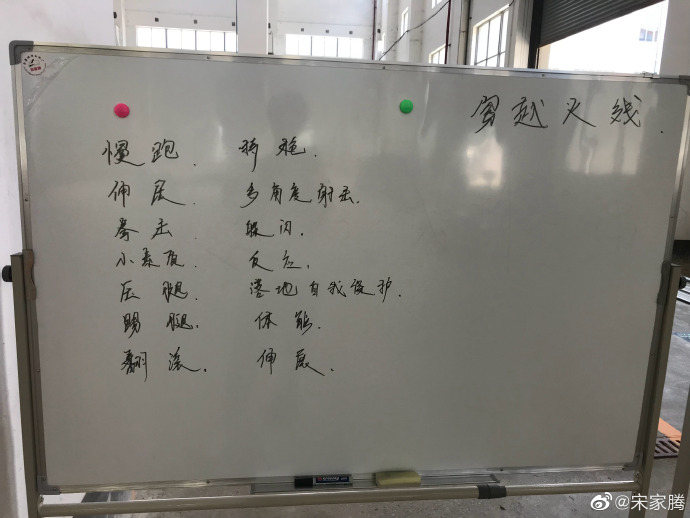 穿越火线.
慢跑. 持枪.
伸展. 多角度射击.
拳击 躲闪.
小素质. 反应.
压腿 落地自我保护.
踢腿. 体能.
翻滚. 伸展.
@宋家腾